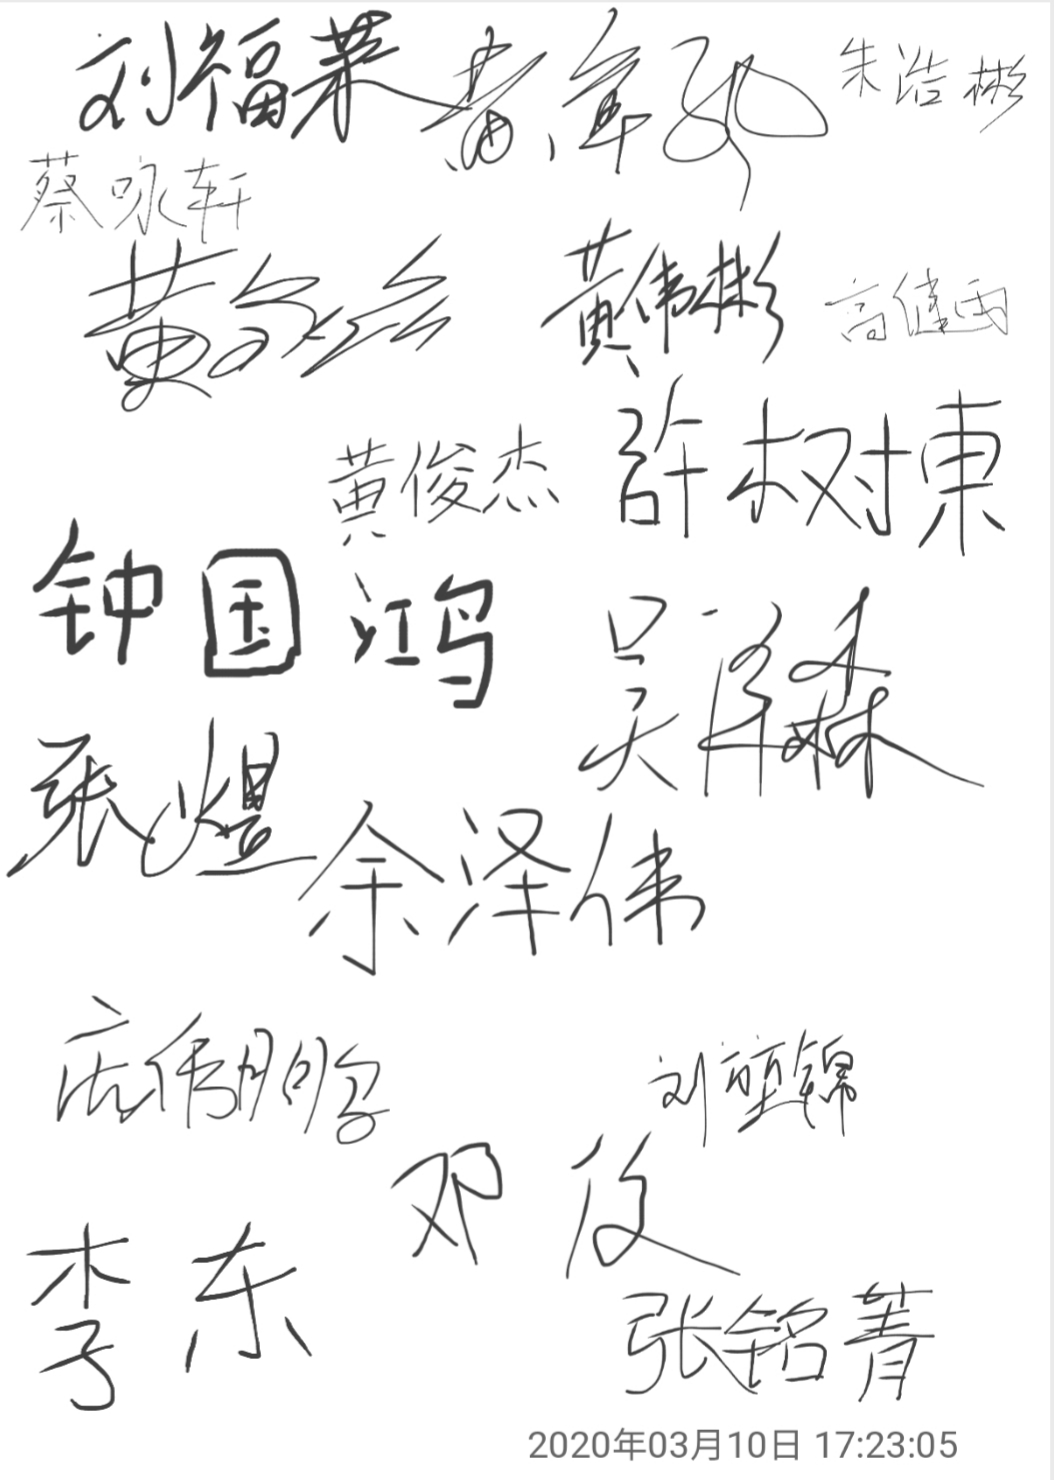 刘福莱
朱浩彬
蔡咏轩
黄伟彬
高健雨
黄俊杰
許树東
钟国鸿
吴泽森
张煜
余泽伟
刘堃锦
邓俊
李东
张铭菁
2020年03月10日 17:23:05